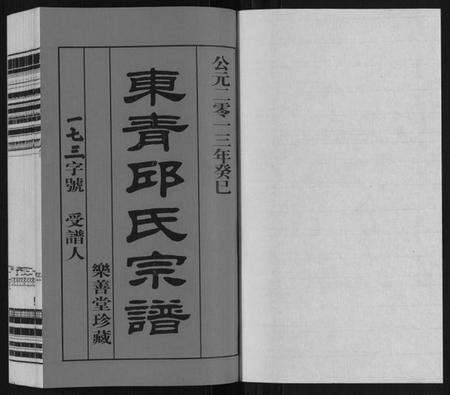 公元二零一三年癸巳
東青邱氏宗譜
樂善堂珍藏
一七三字號 受譜人